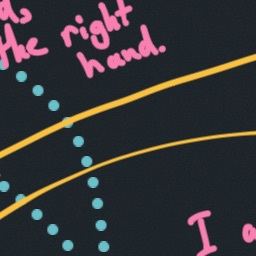 the right
hand.
I a